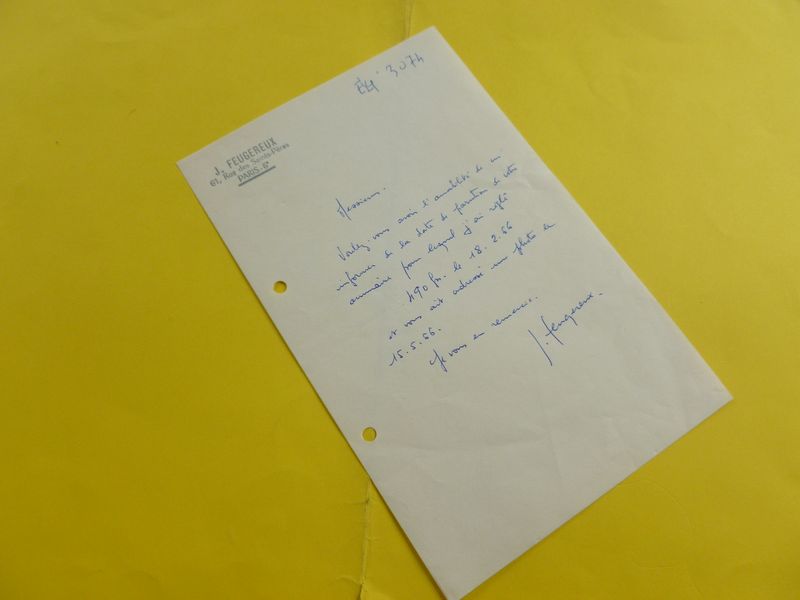 J. FEUGEREUX
61, Rue des Saints-Pères
PARIS-6e
3074
Messieurs.
Voulez-vous avoir l'amabilité de m'
informer de la date de parution de votre
annuaire pour lequel j'ai réglé
490 frs. le 18.2.66
et vous ait adressé un photo le
15.5.66.
Je vous en remercie.
J. Feugereux.